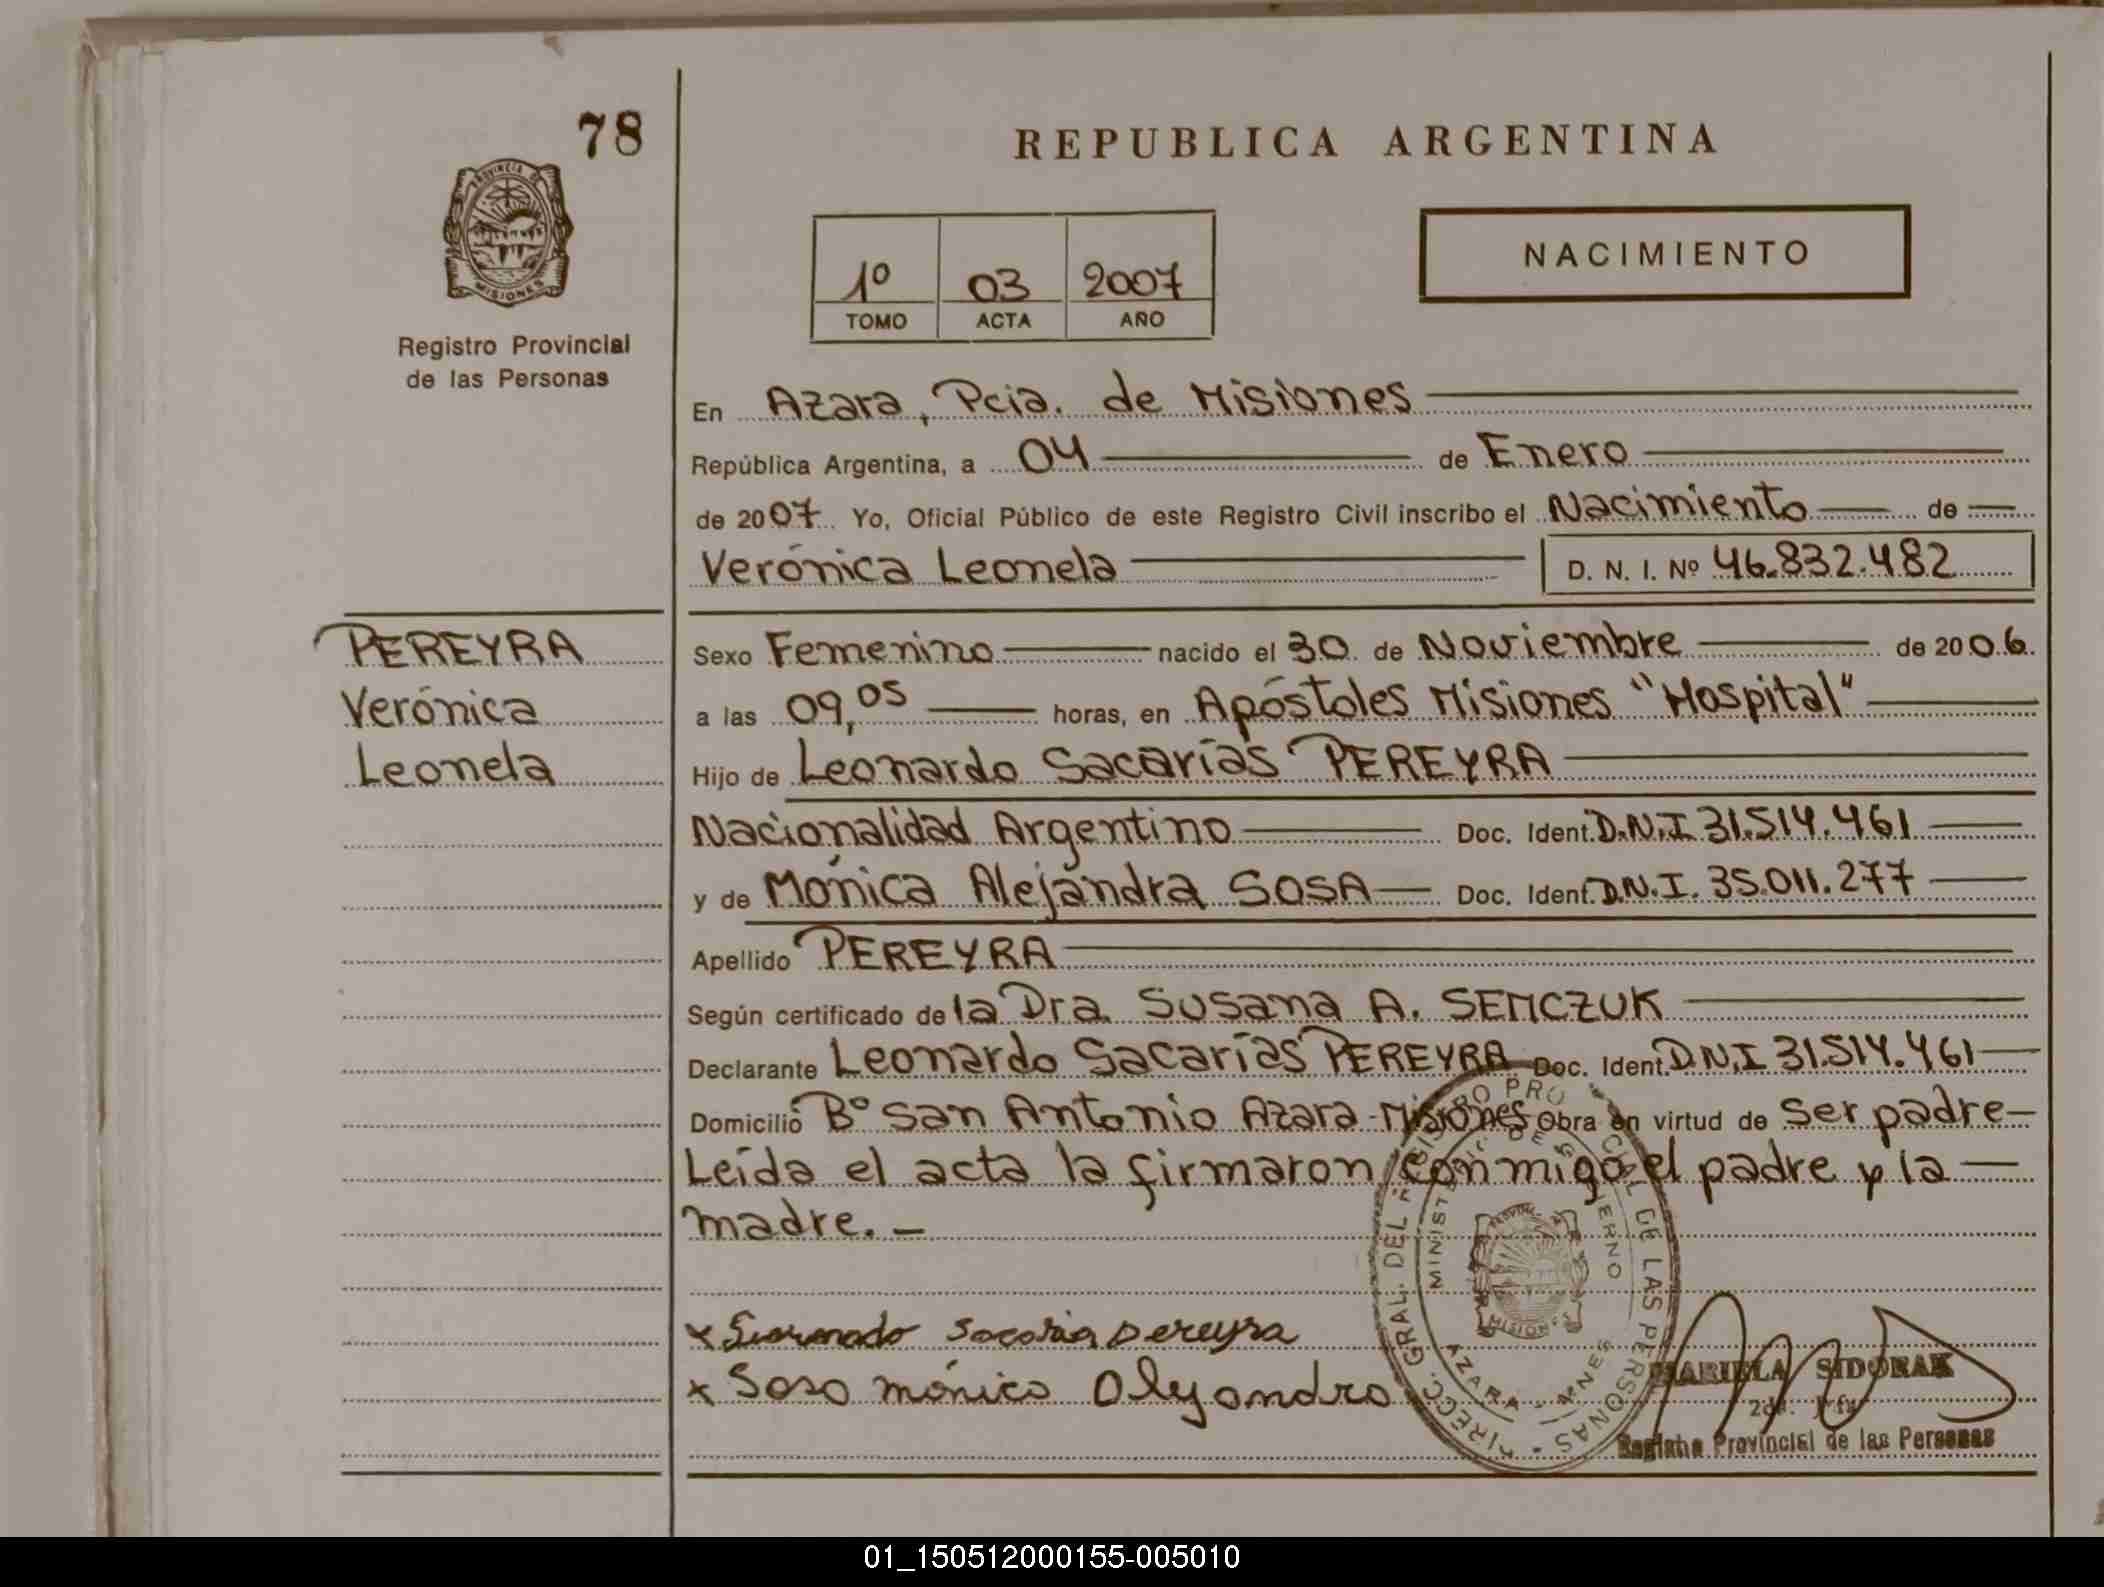 78
REPUBLICA ARGENTINA
PROVINCIA DE
MISIONES
Registro Provincial
de las Personas
1º 03 2007
TOMO ACTA AÑO
NACIMIENTO
En Azara, Pcia. de Misiones
República Argentina, a 04 de Enero
de 2007 Yo, Oficial Público de este Registro Civil inscribo el Nacimiento de
Verónica Leonela D. N. I. Nº 46.832.482
PEREYRA
Verónica
Leonela
Sexo Femenino nacido el 30 de Noviembre de 2006.
a las 09,05 horas, en Apóstoles Misiones "Hospital"
Hijo de Leonardo Sacarías PEREYRA
Nacionalidad Argentino Doc. Ident. D.N.I 31.514.461
y de Mónica Alejandra SOSA Doc. Ident. D.N.I. 35.011.277
Apellido PEREYRA
Según certificado de la Dra. Susana A. SEMCZUK
Declarante Leonardo Sacarías PEREYRA Doc. Ident. D.N.I 31.514.461
Domicilio Bº San Antonio Azara-Misiones Obra en virtud de Ser padre
Leída el acta la firmaron conmigo el padre y la
madre.-
x Leornado Sacarias Pereyra
x Sosa mónica Alejandra
DIRECC. GRAL. DEL REGISTRO PROVINCIAL DE LAS PERSONAS
MINISTERIO DE GOBIERNO
MISIONES
AZARA - MNES
MARIELA SIDORAK
2da. Jefa
Registro Provincial de las Personas
01_150512000155-005010